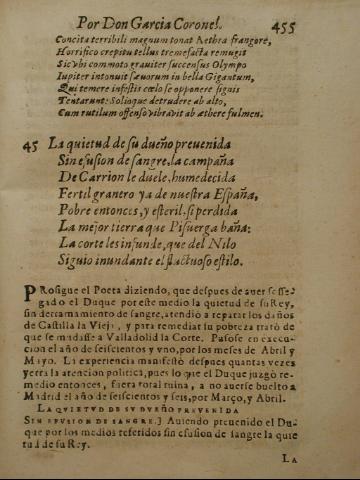 Por Don Garcia Coronel. 455
Concita terribili magnum tonat Aethra frangore,
Horrifico crepitu tellus tremefacta remugit
Sic vbi commoto grauiter succensus Olympo
Iupiter intonuit sæuorum in bella Gigantum,
Qui temere infestis cœlo se opponere signis
Tentarunt: Solioque detrudere ab alto,
Cum rutilum offenso vibravit ab æthere fulmen.
45 La quietud de su dueño preuenida
Sin efusion de sangre, la campaña
De Carrion le duele, humedecida
Fertil granero ya de nuestra España,
Pobre entonces, y esteril, si perdida
La mejor tierra que Pisuerga baña:
La corte les infunde, que del Nilo
Siguio inundante el fluctuoso estilo.
PRosigue el Poeta diziendo, que despues de auer sosse-
gado el Duque por este medio la quietud de su Rey,
sin derramamiento de sangre, atendiò a reparar los daños
de Castilla la Vieja, y para remediar su pobreza tratò de
que se mudasse a Valladolid la Corte. Pusose en execu-
cion el año de seiscientos y vno, por los meses de Abril y
Mayo. La experiencia manifestò despues quantas vezes
yerra la atencion politica, pues lo que el Duque juzgò re-
medio entonces, fuera total ruina, a no auerse buelto a
Madrid el año de seiscientos y seis, por Março, y Abril.
LA QVIETVD DE SV DVEÑO PREVENIDA
SIN EFVSION DE SANGRE.] Auiendo preuenido el Du-
que por los medios referidos sin efusion de sangre la quie
tud de su Rey.
LA